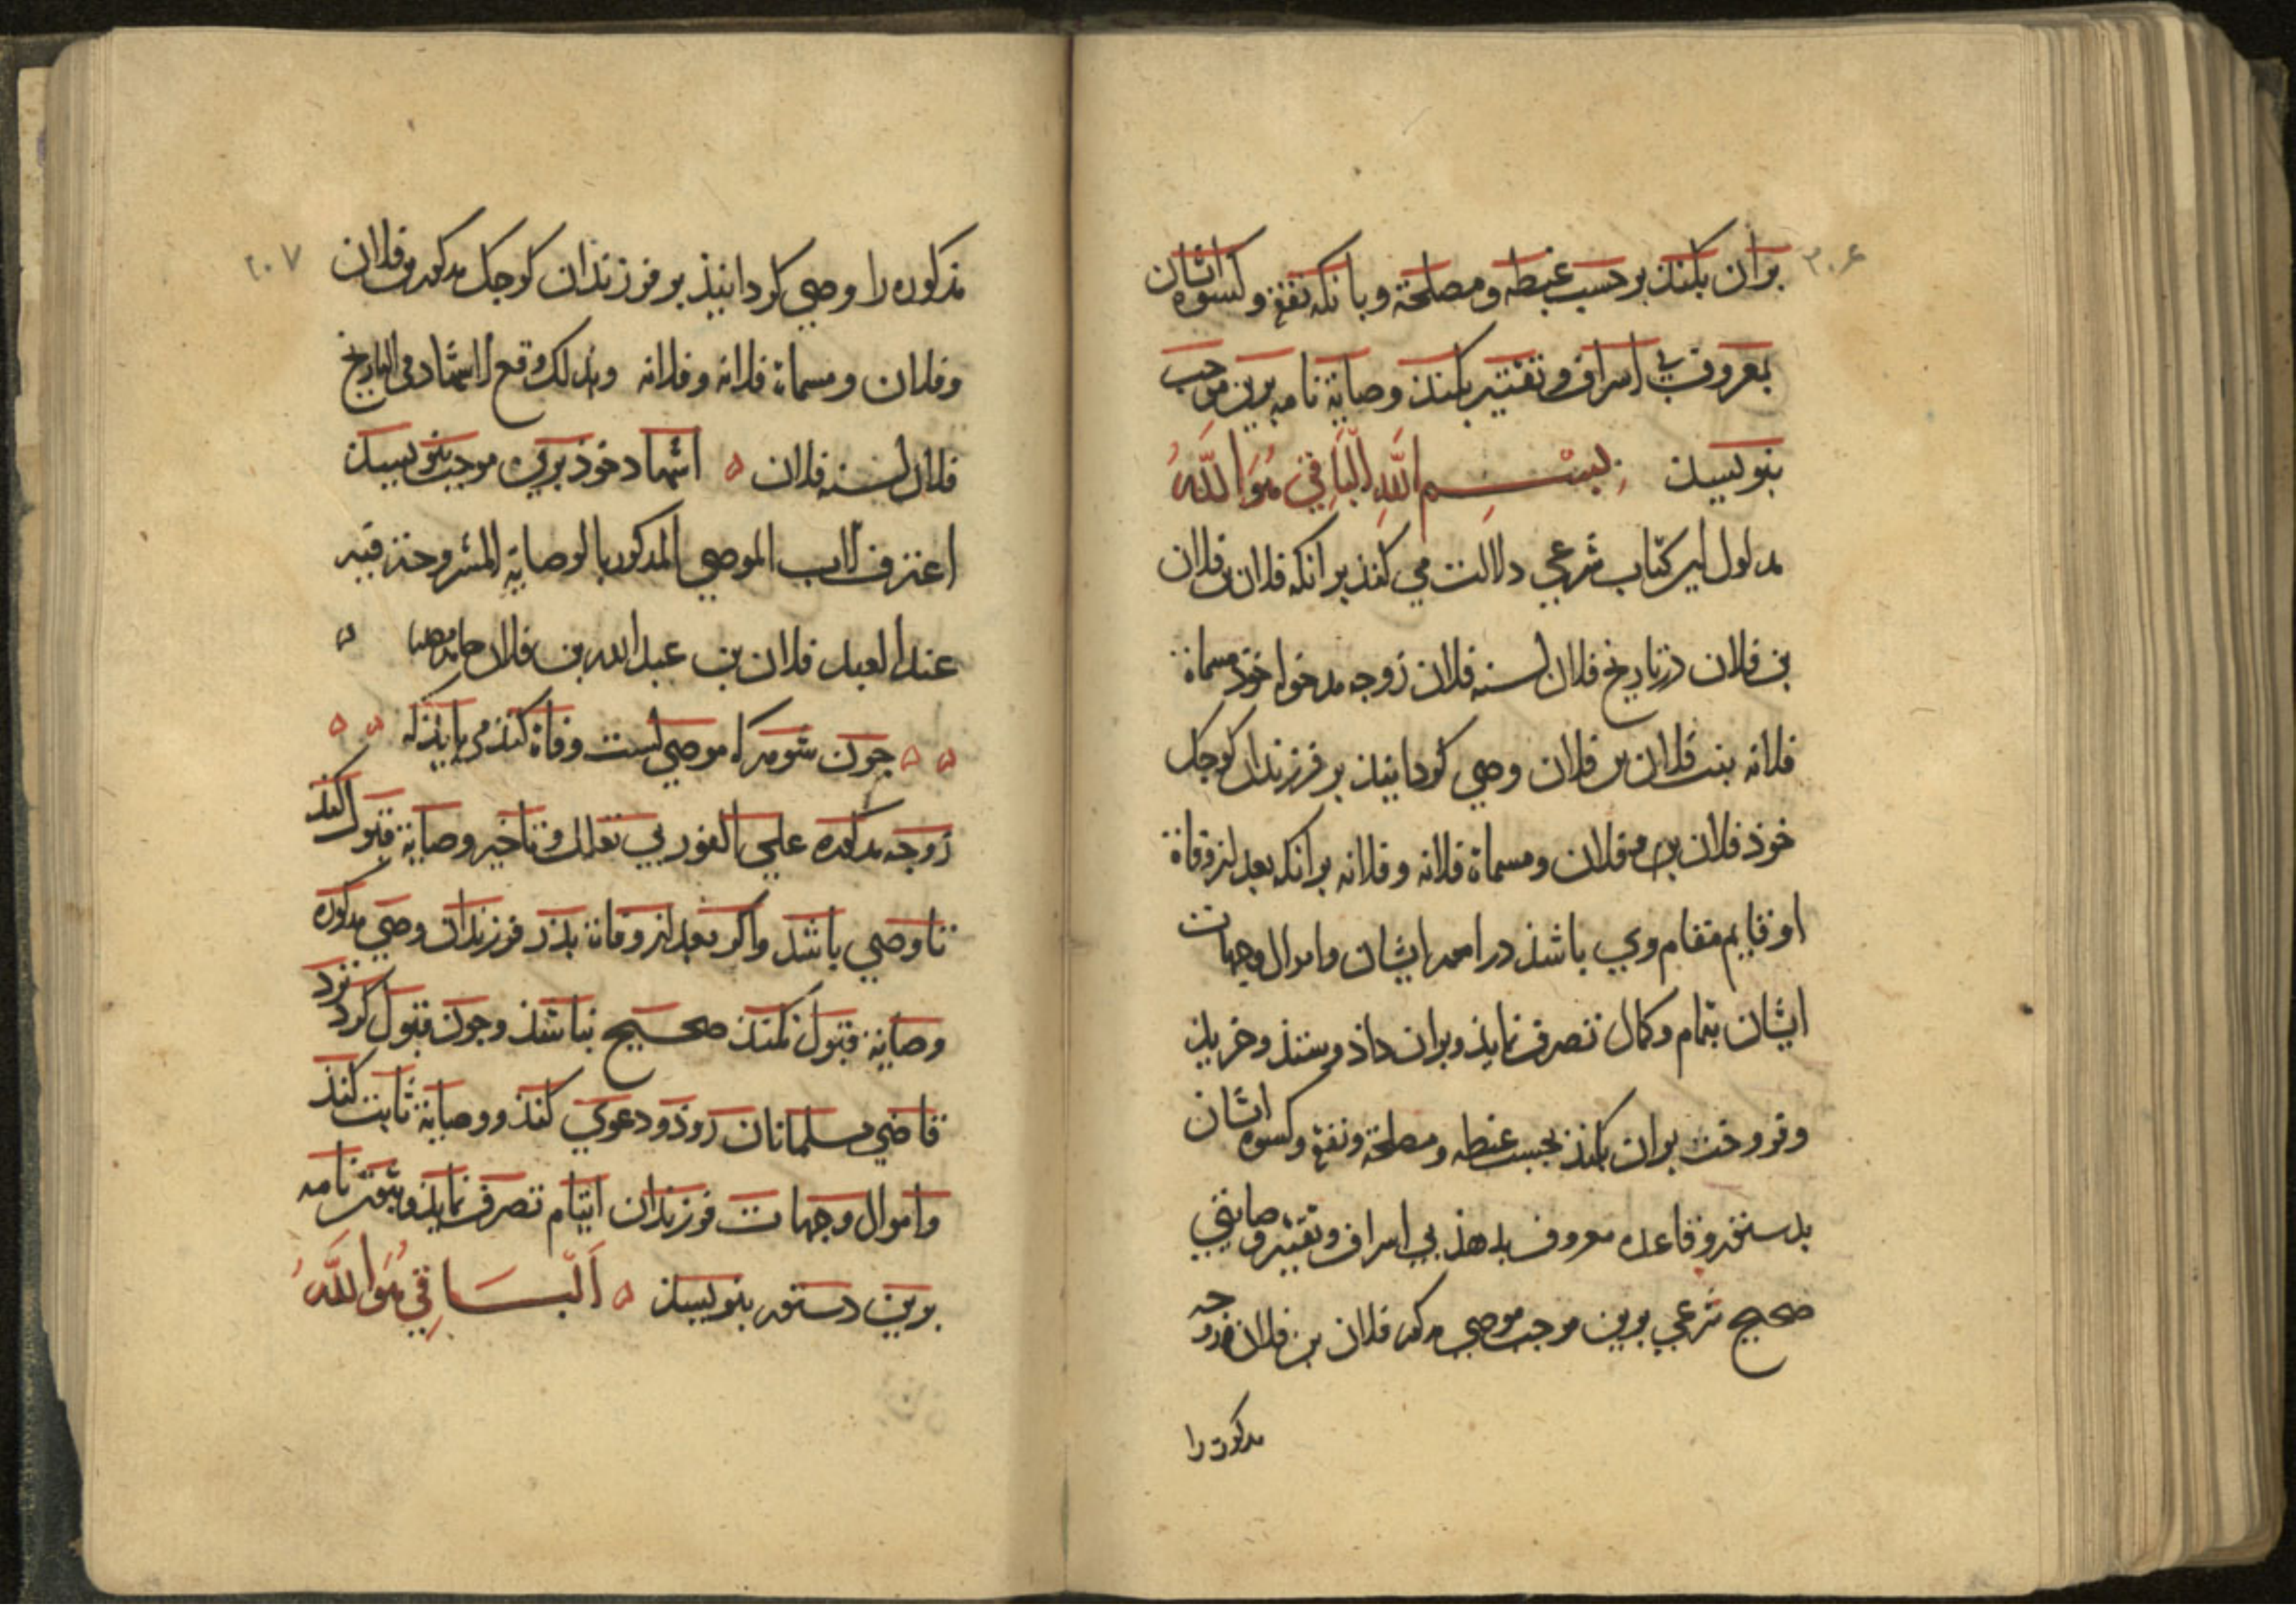 ٢٠٦
بران بکنند بر حسب غبطه و مصلحة و بانکه نفقه و کسوه ایشان
بمعروف بی اسراف و تقتیر بکنند وصایة نامه برین موجب
بنویسند بِسْمِ اللَّهِ الْبَاقِي هُوَ اللَّهُ
مدلول این کتاب شرعی دلالت می کند بر انکه فلان بن فلان
بن فلان در تاریخ فلان لسنه فلان زوجه مدخول خوذ مسماة
فلانه بنت فلان بن فلان وصی کردانیذ بر فرزندان کوجک
خوذ فلان بن فلان و مسماة فلانه و فلانه بر انکه بعد از وفاة
او قایم مقام وی باشذ در امور ایشان و اموال و جهات
ایشان بتمام و کمال تصرف نمایذ و بران داذ و ستذ و خریذ
و فروخت بران بکنذ بحسب غبطه و مصلحة و نفقه و کسوه ایشان
بدستور و قاعده معروف بدهذ بی اسراف و تقتیر وصایتی
صحیح شرعی برین موجب موصی مذکور فلان بن فلان زوجه
مذکوره را
٢٠٧
مذکوره را وصی کردانیذ بر فرزندان کوجک مذکور فلان
و فلان و مسماة فلانه و فلانه وبذلک وقع الاشهاد فی التاریخ
فلان لسنه فلان ه اشهاد خوذ برین موجب بنویسند
اعترف الاب الموصي المذکور بالوصایة المشروحة فیه
عند العبد فلان بن عبد الله بن فلان حامدا ه
ه ه جون شوهر که موصی است وفاة کنذ می بایذ که ه ه
زوجه مذکوره علی الفور بی تعلل و تاخیر وصایة قبول کنذ
تا وصی باشذ و اکر بعد از وفاة بذر فرزندان وصی مذکوره
وصایة قبول نکنذ صحیح نباشذ و جون قبول کرد نزد
قاضی مسلمانان روذ و دعوی کنذ و وصایة ثابت کنذ
و اموال و جهات فرزندان ایتام تصرف نمایذ و ثبوت نامه
برین دستور بنویسند ه اَلْبَاقِي هُوَ اللَّهُ